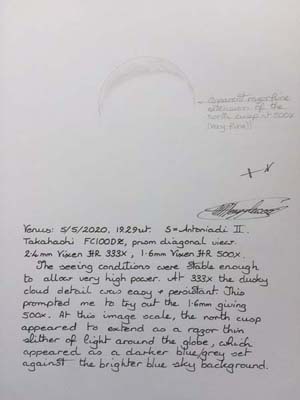 apparent razor fine
extension of the
north cusp at 500x
(very fine)
N
Venus: 5/5/2020, 19.29ut. S=Antoniadi II.
Takahashi FC100DZ, prism diagonal view.
2.4mm Vixen HR 333x, 1.6mm Vixen HR 500x.
The seeing conditions were stable enough
to allow very high power. At 333x the dusky
cloud detail was easy & persistant. This
prompted me to try out the 1.6mm giving
500x. At this image scale, the north cusp
appeared to extend as a razor thin
slither of light around the globe, which
appeared as a darker blue/grey set
against the brighter blue sky background.